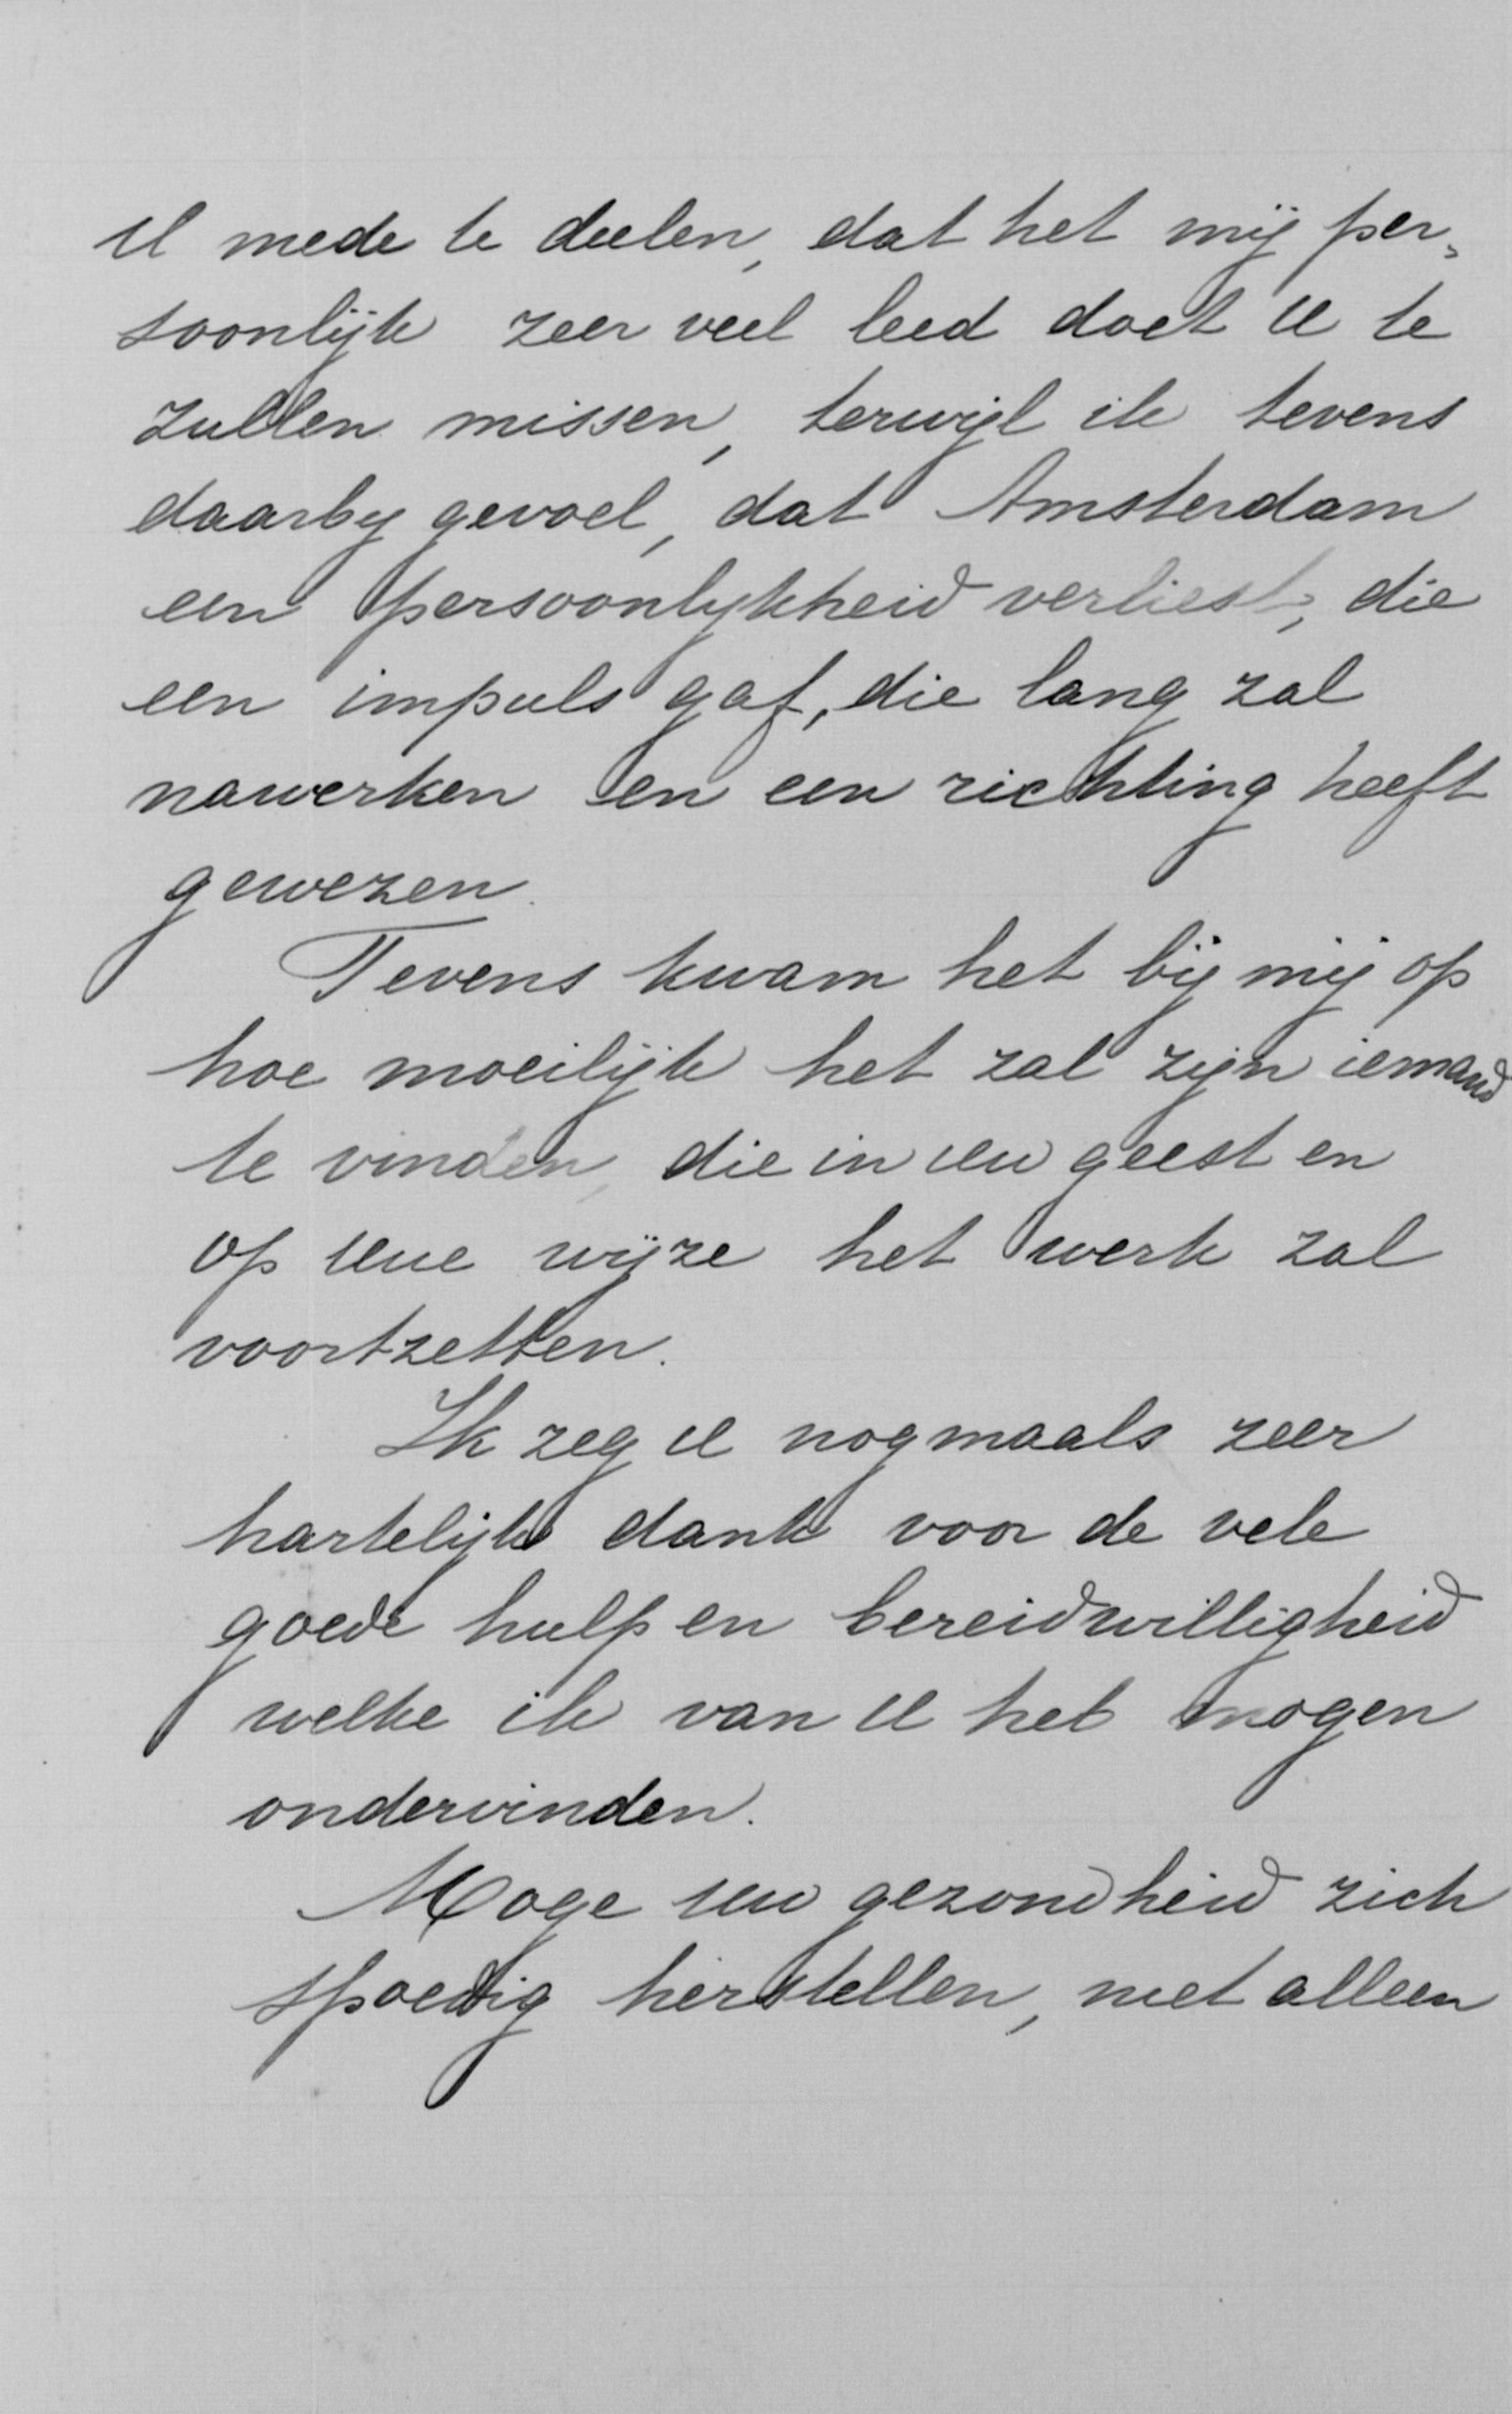 U mede te deelen, dat het mij per„
soonlijk zeer veel leed doet U te
zullen missen, terwijl ik tevens
daarby gevoel, dat Amsterdam
een persoonlykheid verliest, die
een impuls gaf, die lang zal
nawerken en een richting heeft
gewezen.
Tevens kwam het bij mij op
hoe moeilijk het zal zijn iemand
te vinden, die in uw geest en
op uwe wijze het werk zal
voortzetten.
Ik zeg U nogmaals zeer
hartelijk dank voor de vele
goede hulp en bereidwilligheid
welke ik van U heb mogen
ondervinden.
Moge uw gezondheid zich
spoedig herstellen, niet alleen